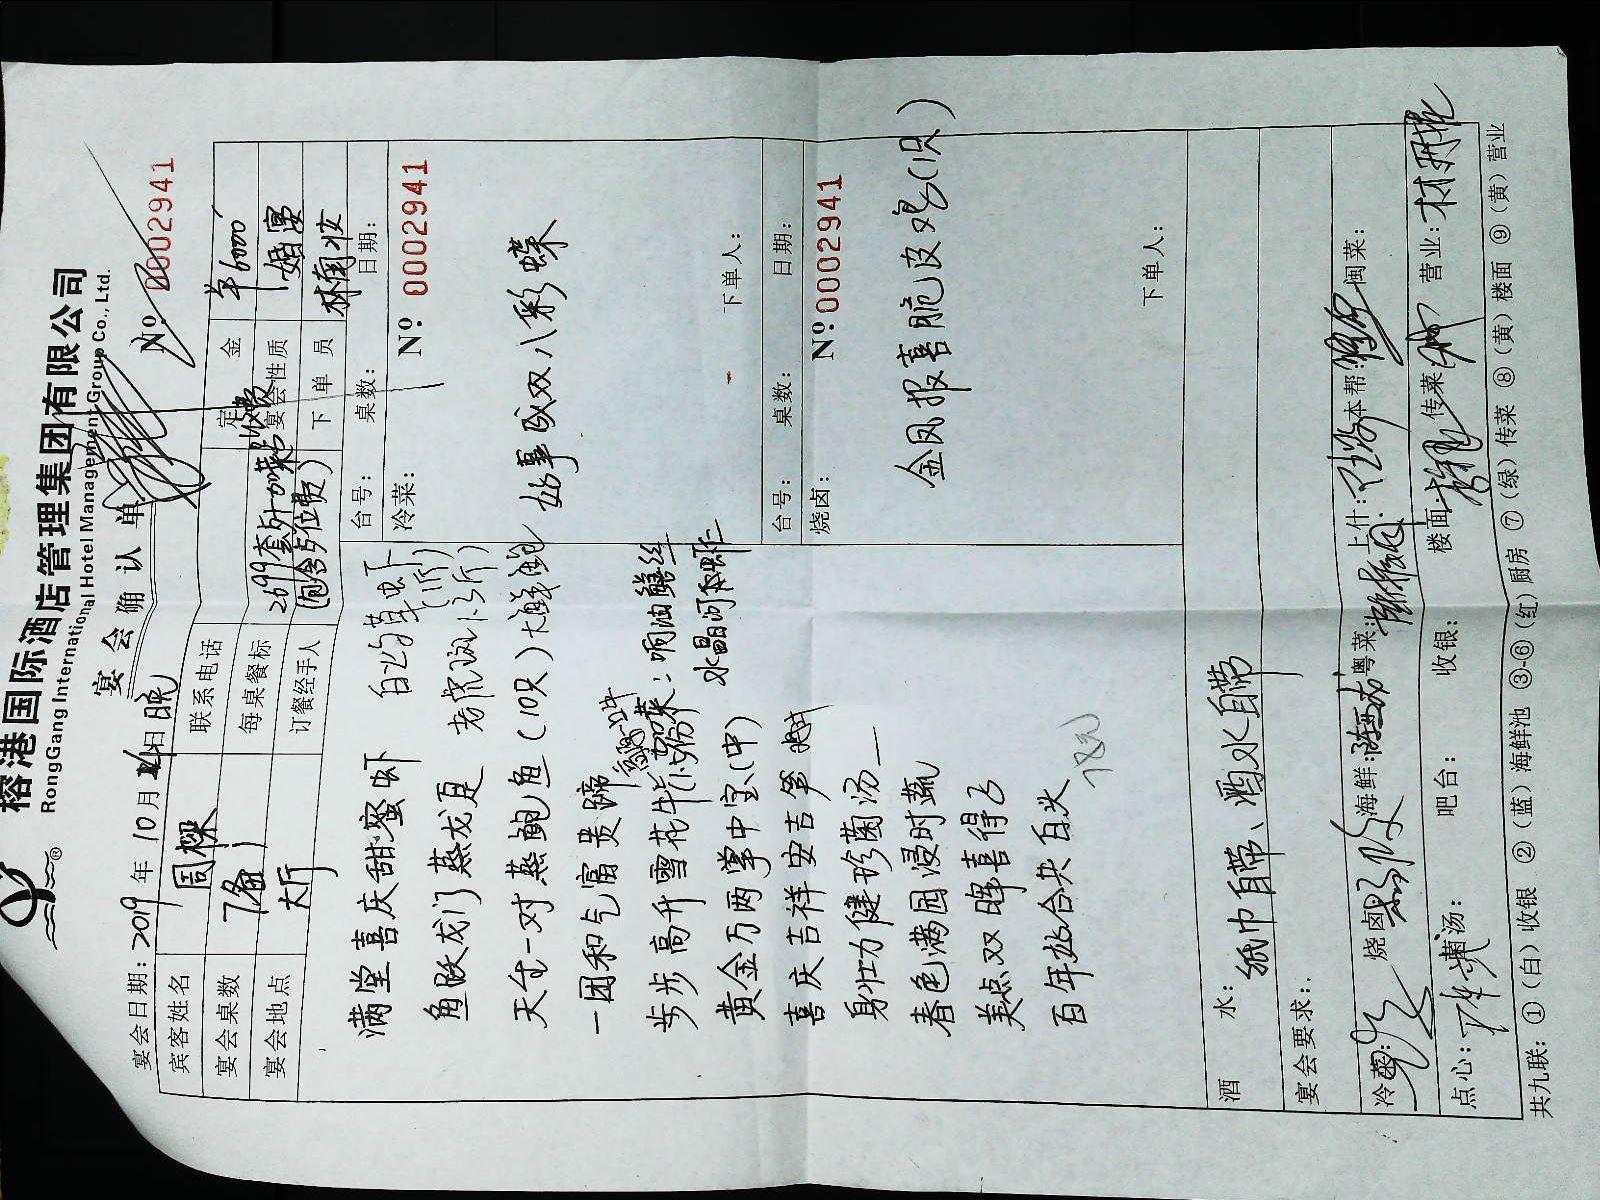 榕港国际酒店管理集团有限公司
RongGang International Hotel Management Group Co., Ltd.
宴会确认单
№ 0002941
宴会日期: 2019 年 10 月 日晚
宾客姓名 周樑 联系电话 定金 ¥6000
宴会桌数 7备1 每桌餐标 2699套外加菜 宴会性质 婚宴
宴会地点 大厅 订餐经手人 (包含 位费) 下单员 林雨妆
台号: 桌数: 日期:
冷菜: № 0002941
好事成双八彩蝶
下单人:
台号: 桌数: 日期:
烧卤: № 0002941
金凤报喜脆皮鸡(1只)
下单人:
满堂喜庆甜蜜虾 白灼草虾(1斤)
鱼跃龙门蒸龙趸 老虎斑
天生一对蒸鲍鱼(10只)大鲜鲍
一团和气富贵蹄
步步高升雪花牛 加菜: 响油鳝丝
黄金万两掌中宝(中) 水晶河虾
喜庆吉祥安吉笋
身壮力健珍菌汤
春色满园浸时蔬
美点双晖喜得子
百年好合共白头
酒水: 纸巾自带、酒水自带
宴会要求:
冷菜: 烧卤: 海鲜: 粤菜: 上什: 本帮: 闽菜:
点心: 汤: 吧台: 收银: 楼面: 传菜: 营业:
共九联: ①(白)收银 ②(蓝)海鲜池 ③-⑥(红)厨房 ⑦(绿)传菜 ⑧(黄)楼面 ⑨(黄)营业